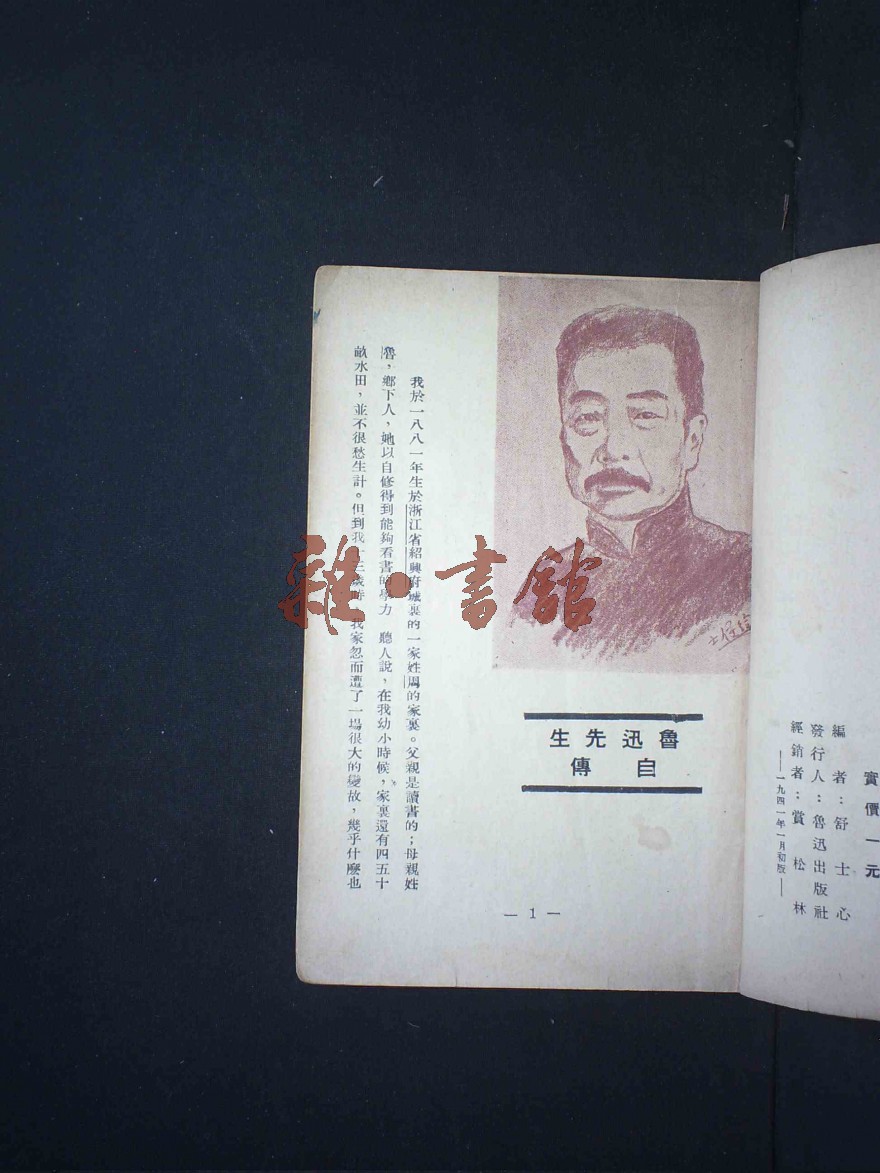 實價一元
編者：舒士心
發行人：魯迅出版社
經銷者：賞松林
——一九四一年一月初版——
魯迅先生
自傳
我於一八八一年生於浙江省紹興府城裏的一家姓周的家裏。父親是讀書的；母親姓
魯，鄉下人，她以自修得到能夠看書的學力　聽人說，在我幼小時候，家裏還有四五十
畝水田，並不很愁生計。但到我十三歲時，我家忽而遭了一場很大的變故，幾乎什麼也
— 1 —
雜·書館